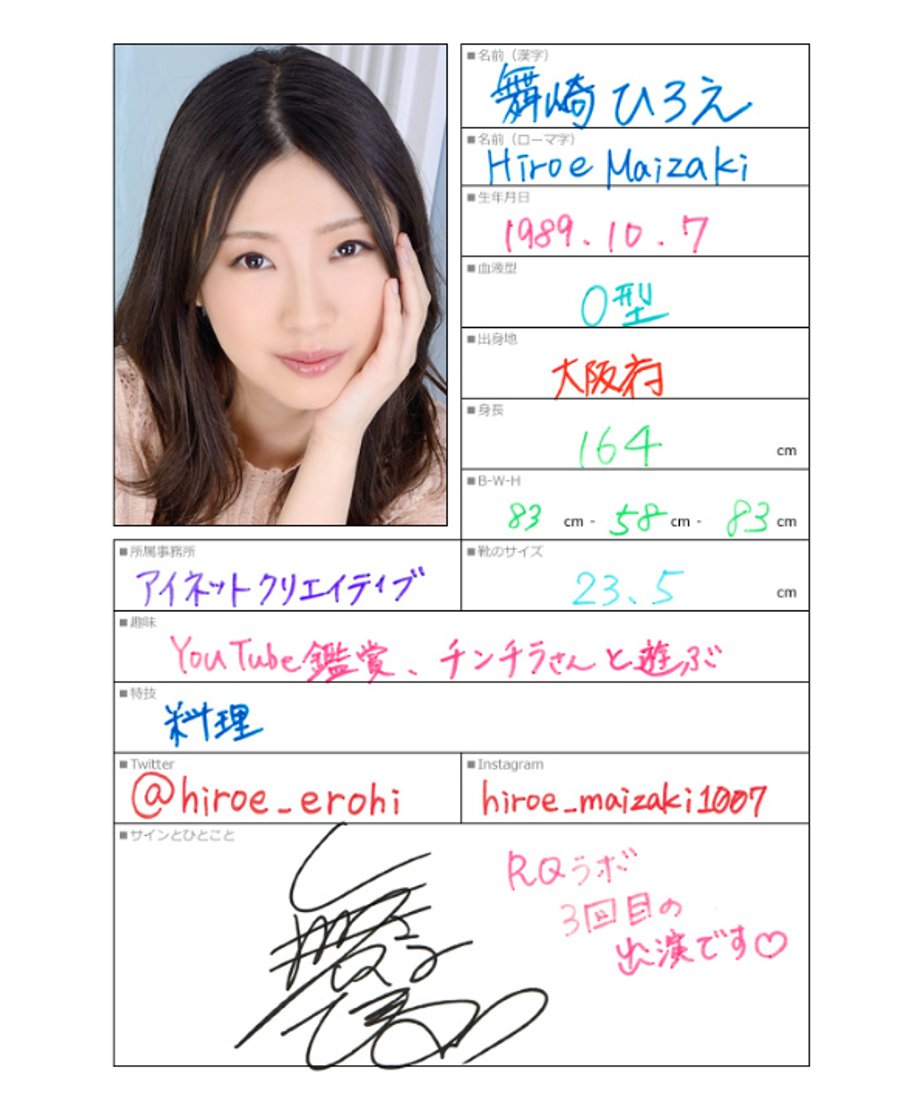 ■名前（漢字）
舞崎ひろえ
■名前（ローマ字）
Hiroe Maizaki
■生年月日
1989.10.7
■血液型
O型
■出身地
大阪府
■身長
164 cm
■B-W-H
83 cm - 58 cm - 83 cm
■所属事務所
アイネットクリエイティブ
■靴のサイズ
23.5 cm
■趣味
YouTube鑑賞、チンチラさんと遊ぶ
■特技
料理
■Twitter
@hiroe_erohi
■Instagram
hiroe_maizaki1007
■サインとひとこと
RQラボ
3回目の
出演です♡